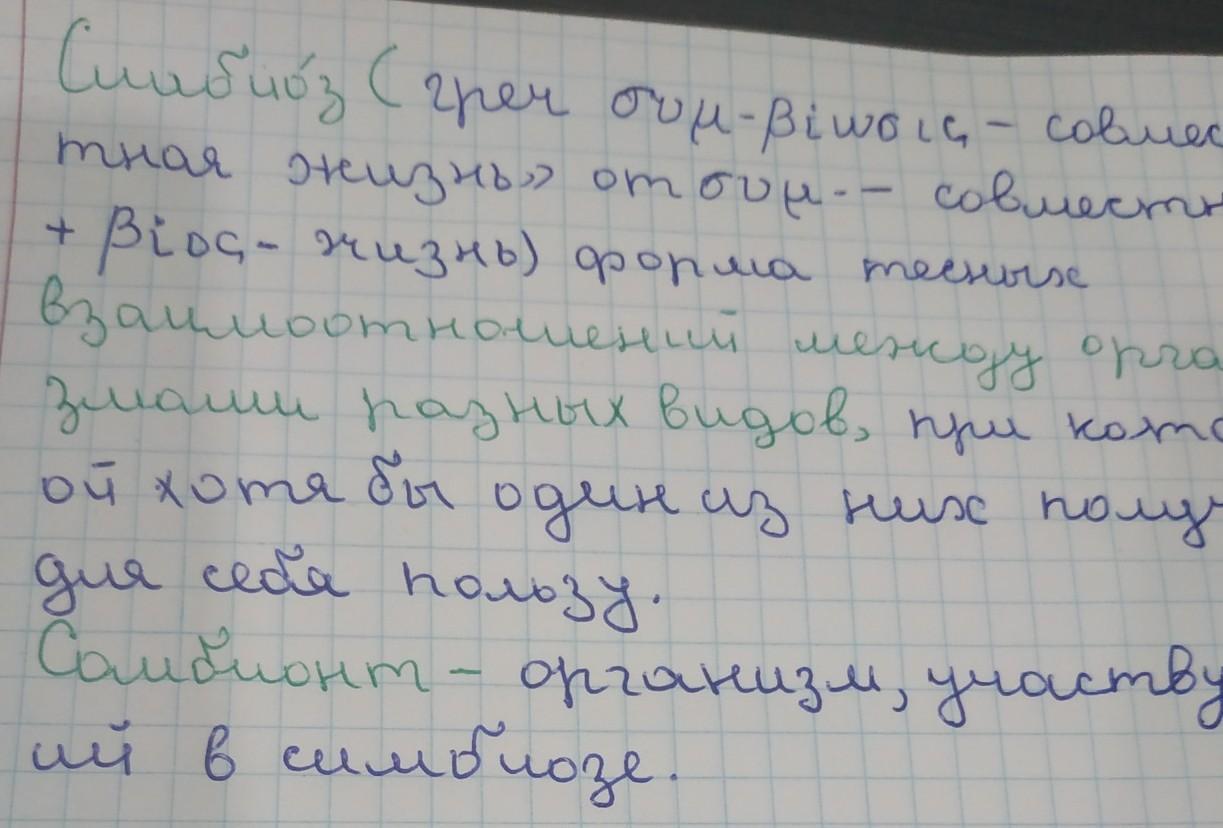 Симбио́з (греч συμ-βίωσις - совмес
тная жизнь» от συμ-- совместн
+ βίος - жизнь) форма тесных
взаимоотношений между орга
змами разных видов, при кото
ой хотя бы один из них получ
для себя пользу.
Самбионт - организм, участву
ий в симбиозе.